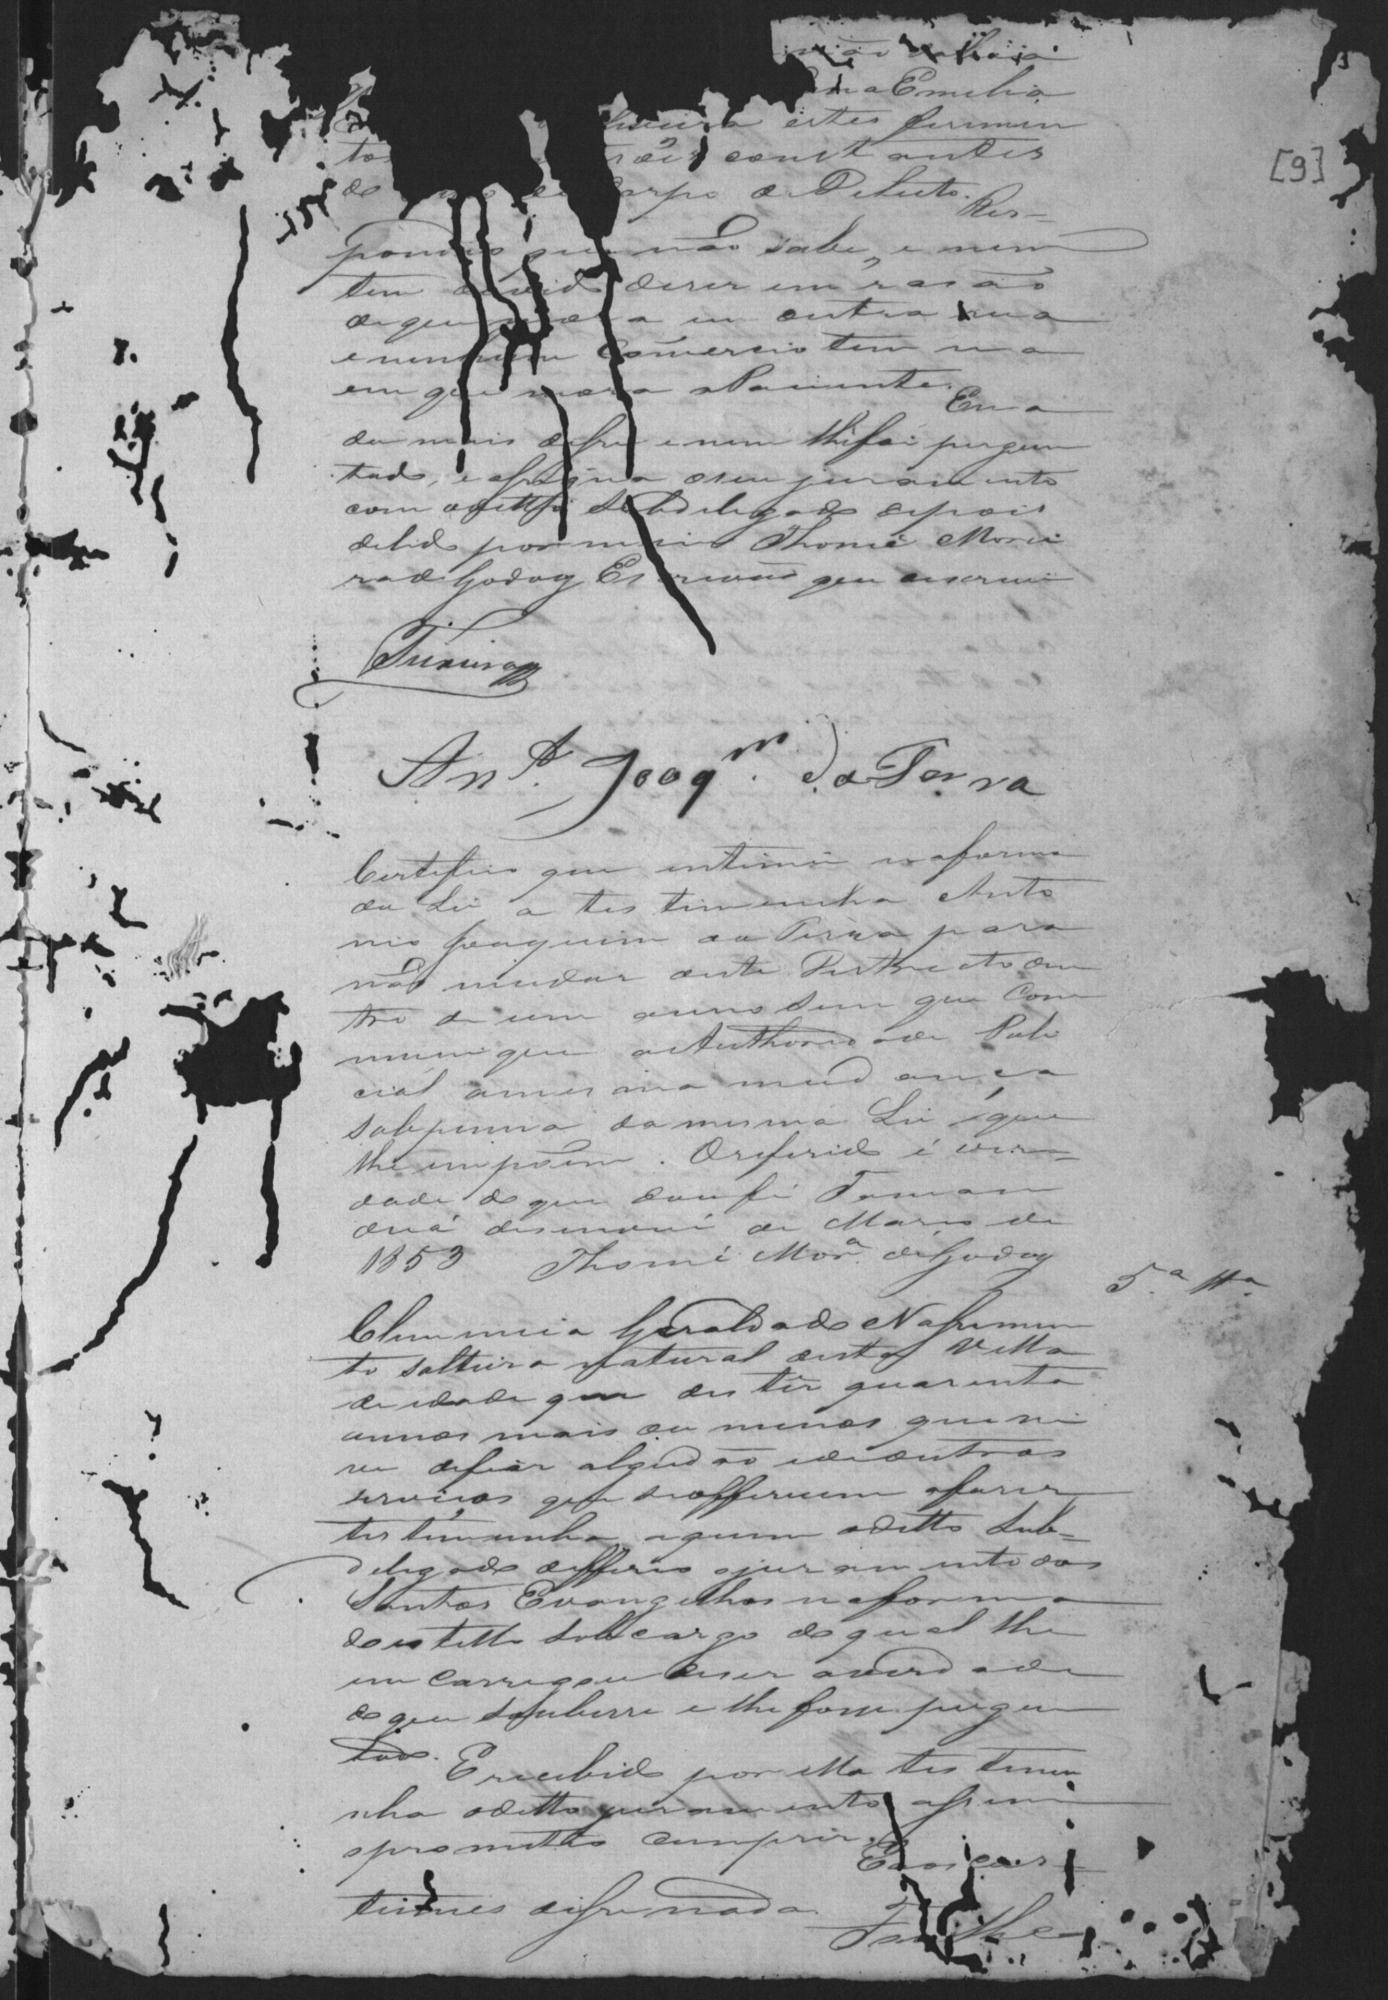 Emilia
estes ferimen
tos constantes
do Corpo de Delicto. Res-
pondeo que não sabe, e nem
tem ouvido diser em rasão
de que mora em outra rua
e nenhum Comercio tem na
em que mora a Paciente. E na
da mais disse e nem lhe foi pergun
tado, e assigna o seu juramento
com o ditto Subdelegado depois
de lido por mim Thomé Morei
ra de Godoy Escrivão que escrevi
Teixeira
Anto. Joaqm. da Terra
Certifico que intimei na forma
da Lei a testemunha Anto
nio Joaquim da Terra para
não mudar deste Destricto den
tro de um anno sem que Com
munique a Authoridade Poli
cial a mesma mudança
sob penna da mesma Lei que
lhe impoem. O referido é ver-
dade do que dou fé Taman
duá desenove de Março de
1853 Thomé Mora. de Godoy
5.a tta.
Clemencia Geralda do Nassimen
to solteira natural desta Villa
de idade que dis ter quarenta
annos mais ou menos que vi
ve de fiar algudão e de outros
serviços que se offerecem a faser
testemunha a quem o ditto Sub-
delegado defferio o juramento dos
Santos Evangelhos na forma
do estillo sob cargo do qual lhe
encarregou diser a verdade
do que soubesse e lhe fosse pergun
tado. E recebido por ella testemu
nha o ditto juramento assim
o prometteo cumprir. E aos cos-
tumes disse nada